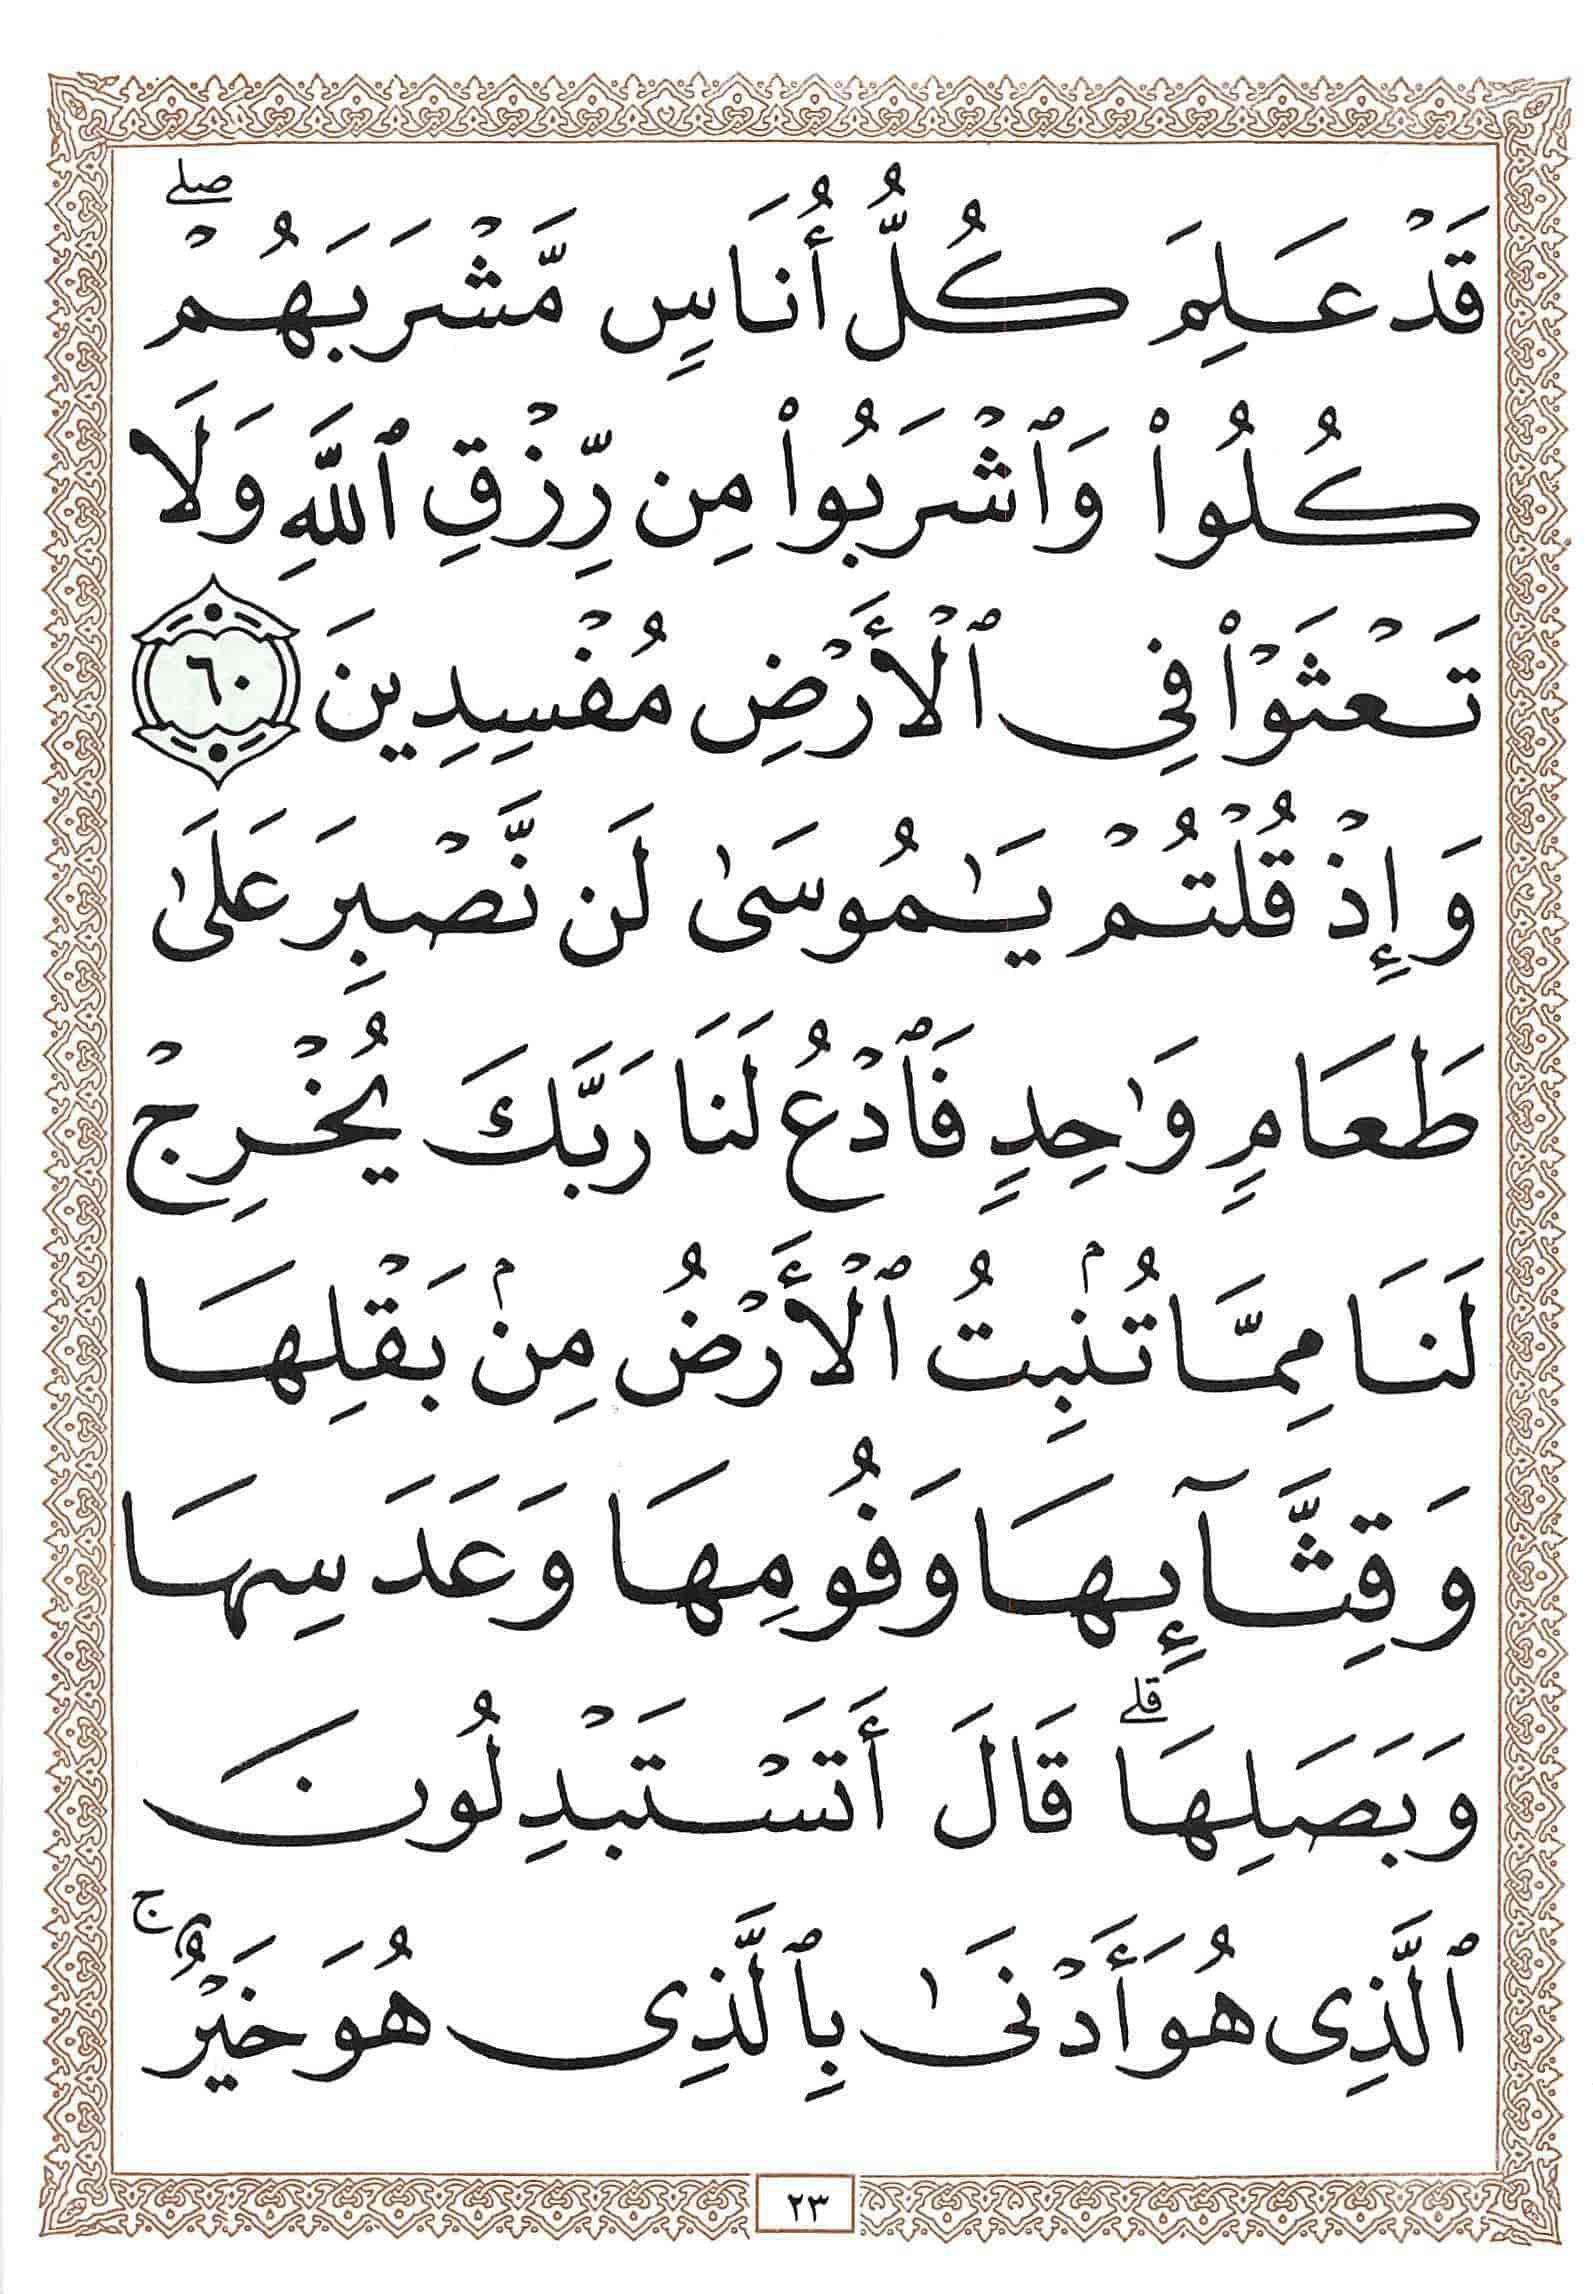 قَدْ عَلِمَ كُلُّ أُنَاسٍ مَّشْرَبَهُمْ ۖ
كُلُوا۟ وَٱشْرَبُوا۟ مِن رِّزْقِ ٱللَّهِ وَلَا
تَعْثَوْا۟ فِى ٱلْأَرْضِ مُفْسِدِينَ ٦٠
وَإِذْ قُلْتُمْ يَـٰمُوسَىٰ لَن نَّصْبِرَ عَلَىٰ
طَعَامٍ وَٰحِدٍ فَٱدْعُ لَنَا رَبَّكَ يُخْرِجْ
لَنَا مِمَّا تُنۢبِتُ ٱلْأَرْضُ مِنۢ بَقْلِهَا
وَقِثَّآئِهَا وَفُومِهَا وَعَدَسِهَا
وَبَصَلِهَا ۖ قَالَ أَتَسْتَبْدِلُونَ
ٱلَّذِى هُوَ أَدْنَىٰ بِٱلَّذِى هُوَ خَيْرٌ ۚ
٢٣